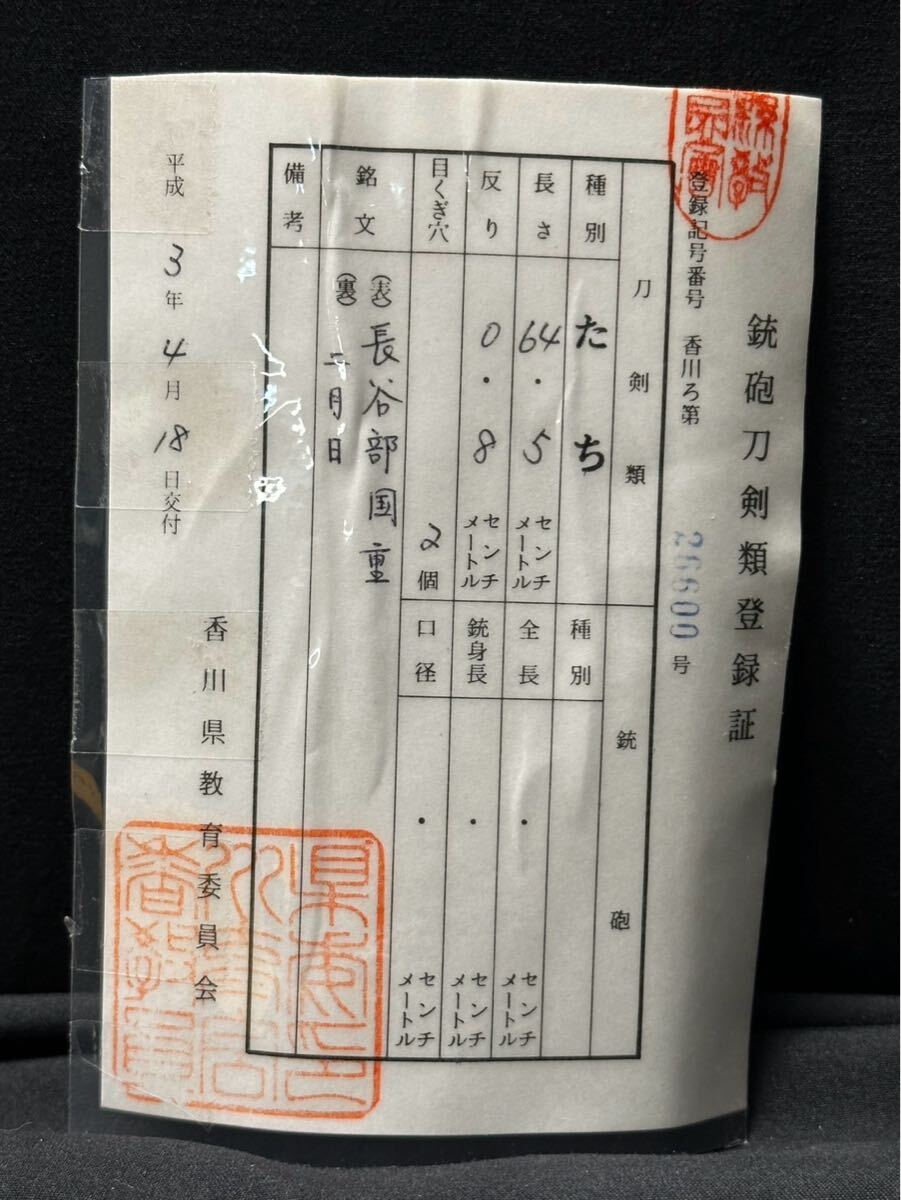 銃砲刀剣類登録証
登録記号番号 香川ろ第 26600 号
刀剣類
種別 たち
長さ 64.5 センチメートル
反り 0.8 センチメートル
目くぎ穴 2個
銃砲
種別
全長 . センチメートル
銃身長 . センチメートル
口径 . センチメートル
銘文 (表) 長谷部国重
(裏) 二月日
備考
平成3年4月18日交付
香川県教育委員会